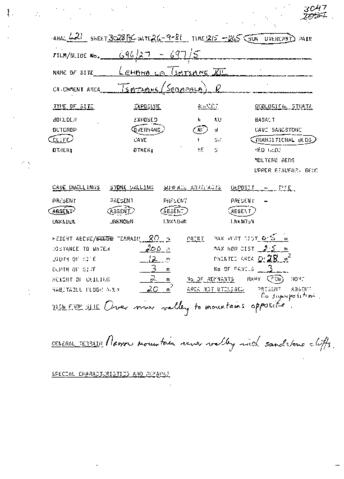 3047
ANAL L21 SHEET 3028BC DATE 26-9-81 TIME 1215 - 1245 SUN OVERCAST RAIN
FILM/SLIDE No. 696/27 - 697/5
NAME OF SITE LEHAHA LA TSATSANE XII
CATCHMENT AREA TSATSANE (SEBAPALA) R
TYPE OF SITE EXPOSURE ASPECT GEOLOGICAL STRATA
BOULDER EXPOSED N NW BASALT
OUTCROP OVERHANG W CAVE SANDSTONE
CLIFF CAVE TRANSITIONAL BEDS
OTHER: OTHER: NE S RED BEDS
MOLTENO BEDS
UPPER BEAUFORT BEDS
CAVE DWELLINGS STONE WALLING SURFACE ARTIFACTS DEPOSIT - TYPE
PRESENT PRESENT PRESENT PRESENT -
ABSENT ABSENT ABSENT ABSENT
UNKNOWN UNKNOWN UNKNOWN UNKNOWN
HEIGHT ABOVE/BELOW TERRAIN 80 m PAINT MAX VERT DIST 0.5 m
DISTANCE TO WATER 200 m MAX HOR DIST 2.5 m
WIDTH OF SITE 12 m PAINTED AREA 0.28 m²
DEPTH OF SITE 3 m No OF PANELS 3
HEIGHT OF CEILING 2 m No OF REMNANTS MANY FEW NONE
HABITABLE FLOOR AREA 20 m² AREA NOT UTILISED PRESENT ABSENT
No superposition
VIEW FROM SITE Over river valley to mountains opposite.
GENERAL TERRAIN Narrow mountain river valley with sandstone cliffs.
SPECIAL CHARACTERISTICS AND REMARKS